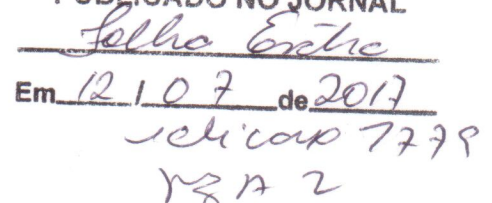 PUBLICADO NO JORNAL
Folha Extra
Em 12 / 07 de 2017
edição 1779
pg A 2